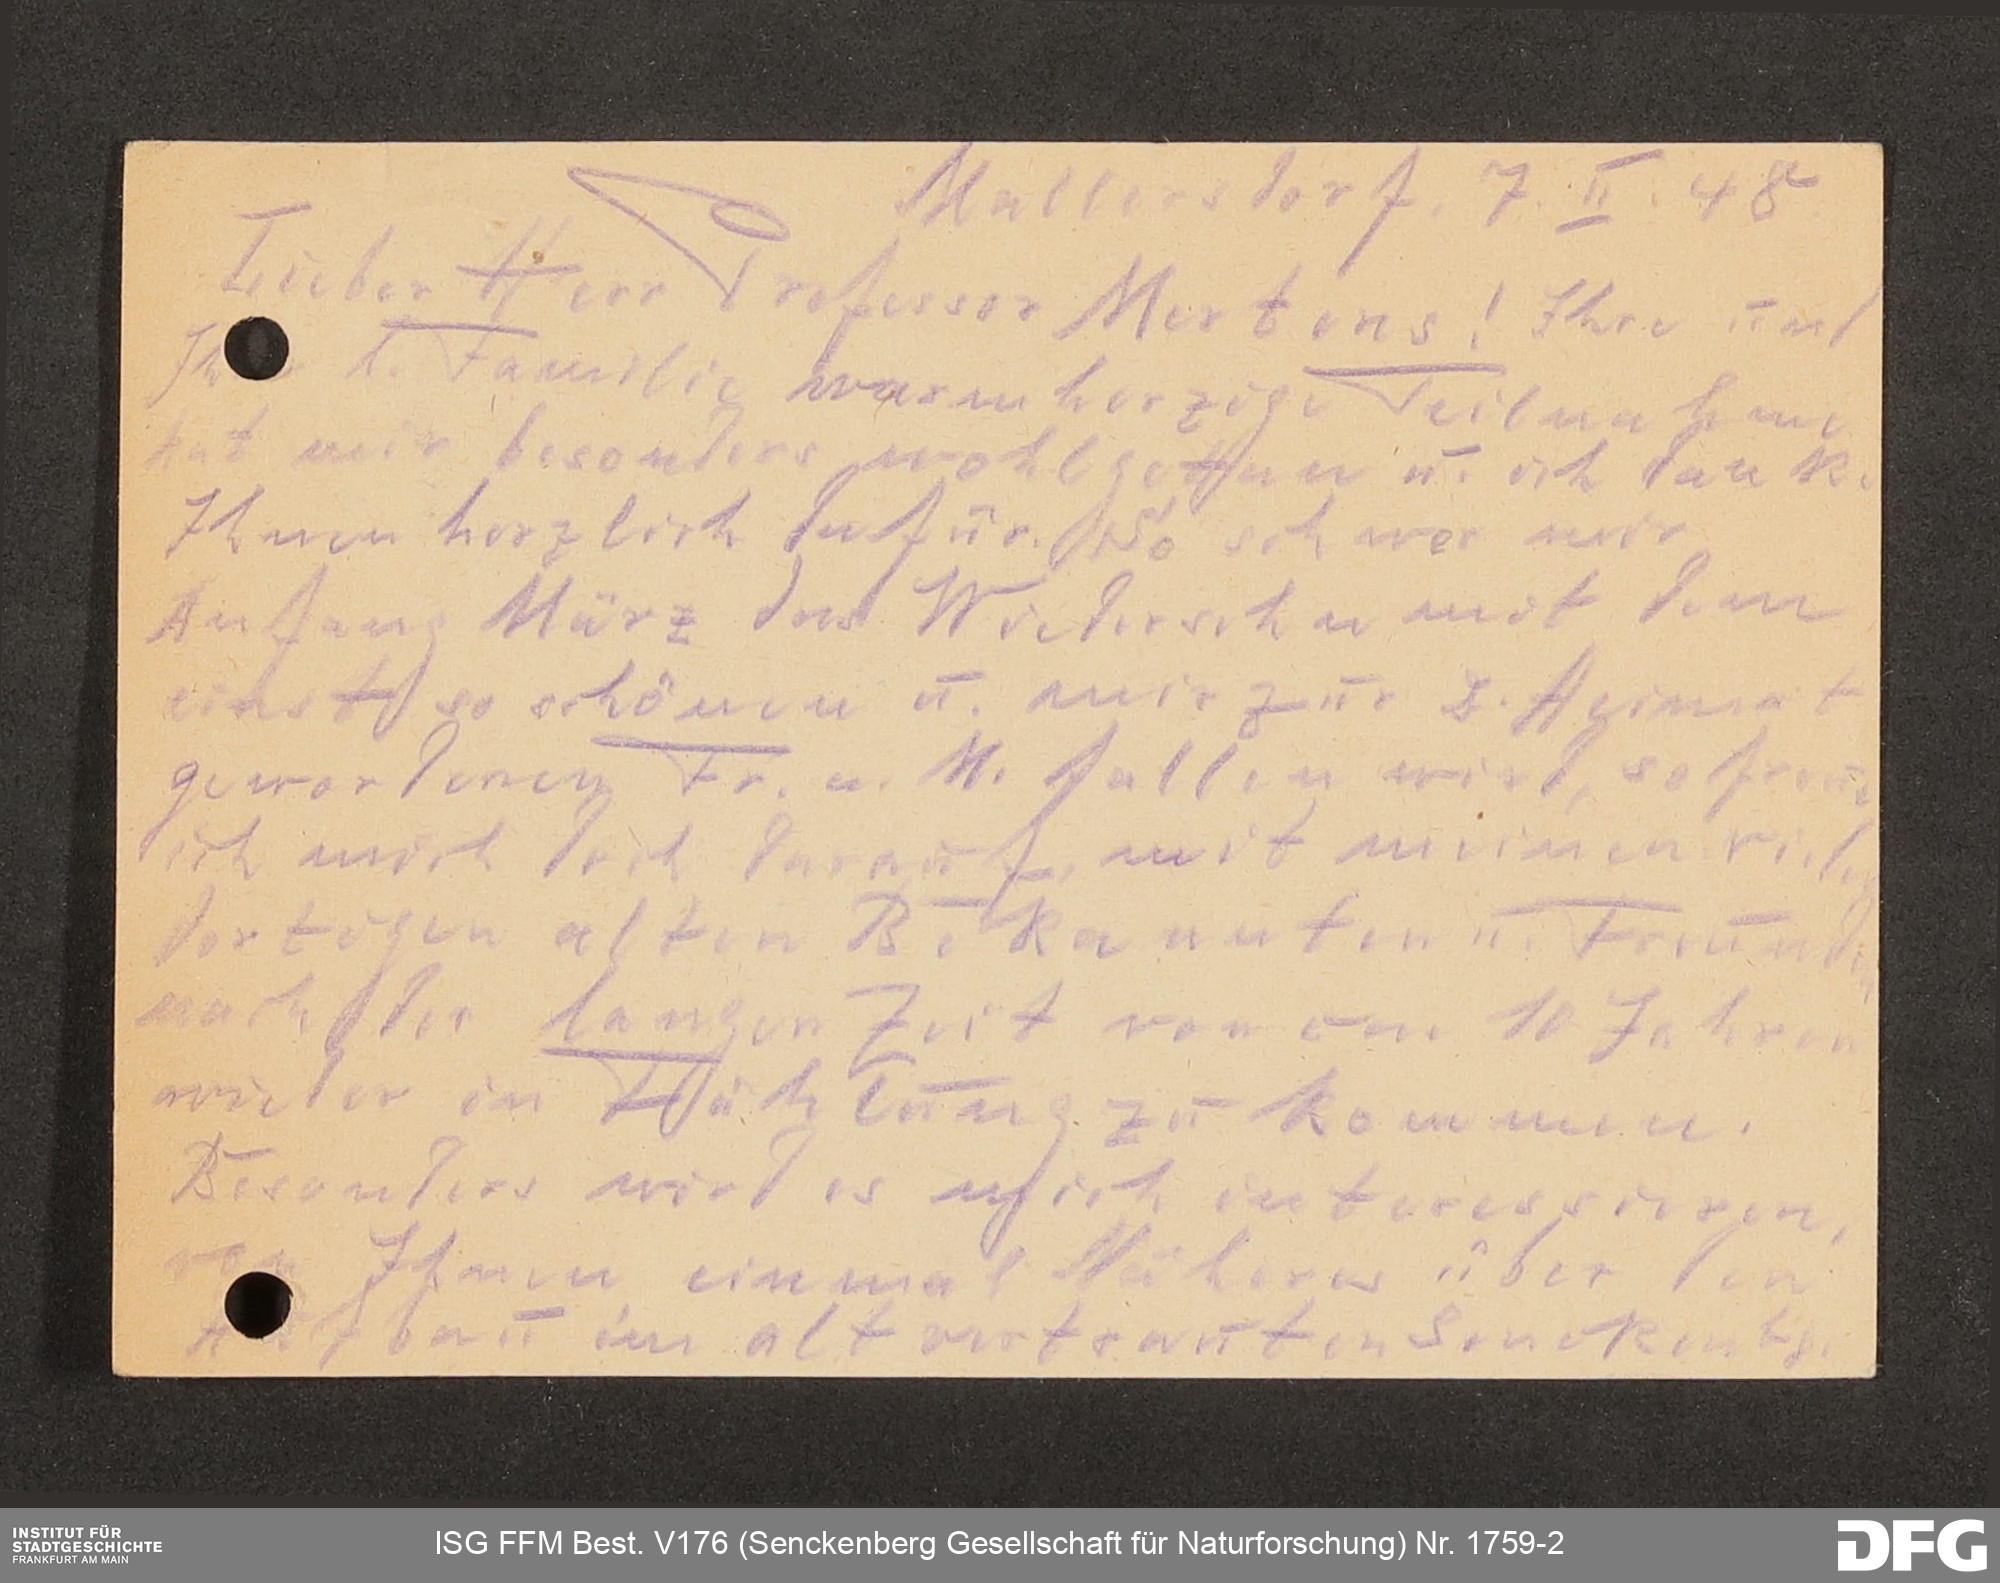 Mallersdorf, 7. II. 48
Lieber Herr Professor Mertens! Ihre und
Ihre l. Familie warmherzige Teilnahme
hat mir besonders wohlgethan u. ich danke
Ihnen herzlich dafür. So schwer mir
Anfang März das Wiedersehn mit dem
einst so schönen u. mir zur 2. Heimat
gewordenen Fr. a. M. fallen wird, so freue
ich mich doch darauf, mit meinen vielen
dortigen alten Bekannten u. Freunden
nach der langen Zeit von 10 Jahren
wieder in Fühlung zu kommen.
Besonders wird es mich interessieren,
von Ihnen einmal Näheres über den
Aufbau im altvertrauten Senckenbg.
INSTITUT FÜR
STADTGESCHICHTE
FRANKFURT AM MAIN
ISG FFM Best. V176 (Senckenberg Gesellschaft für Naturforschung) Nr. 1759-2
DFG